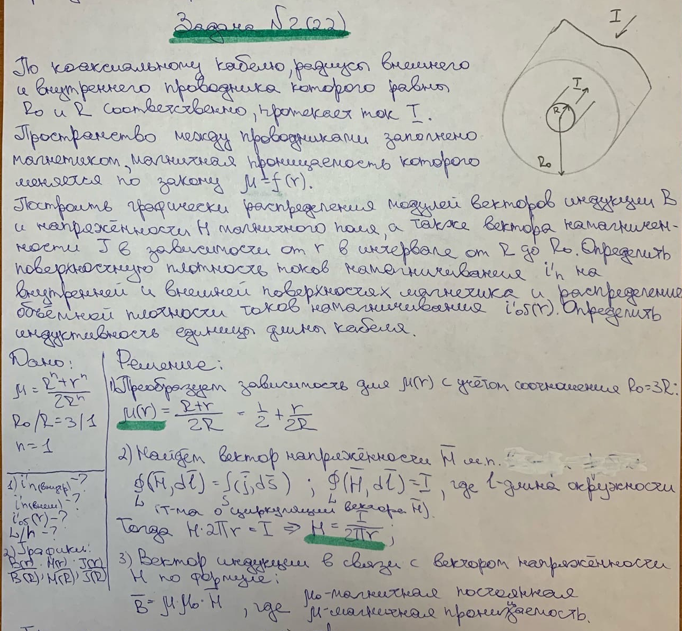 Задача №2(22)
I
По коаксиальному кабелю, радиусы внешнего
и внутреннего проводника которого равны
R₀ и R соответственно, протекает ток I.
I
R
R₀
Пространство между проводниками заполнено
магнетиком, магнитная проницаемость которого
меняется по закону μ=f(r).
Построить графически распределения модулей векторов индукции B
и напряжённости H магнитного поля, а также вектора намагничен-
ности J в зависимости от r в интервале от R до R₀. Определить
поверхностную плотность токов намагничивания i'п на
внутренней и внешней поверхностях магнетика и распределение
объёмной плотности токов намагничивания i'об(r). Определить
индуктивность единицы длины кабеля.
Дано:
μ = (Rⁿ+rⁿ)/(2Rⁿ)
R₀/R=3/1
n=1
1) i'п(внутр)-?
i'п(внеш)-?
i'об(r)-?
L/h-?
2) Графики:
B(r), H(r), J(r)
B(R), H(R), J(R)
Решение:
1) Преобразует зависимость для μ(r) с учётом соотношения R₀=3R:
μ(r) = (R+r)/(2R) = 1/2 + r/(2R)
2) Найдем вектор напряжённости H̄ м.п.
∮L(H̄,dl̄)=∫S(j̄,ds̄) ; ∮L(H̄,dl̄)=I, где l-длина окружности
(т-ма о циркуляции вектора H̄).
Тогда H·2πr=I ⇒ H = I/(2πr);
3) Вектор индукции в связи с вектором напряжённости
H по формуле:
B̄=μ·μ₀·H̄, где μ₀-магнитная постоянная
μ-магнитная проницаемость.